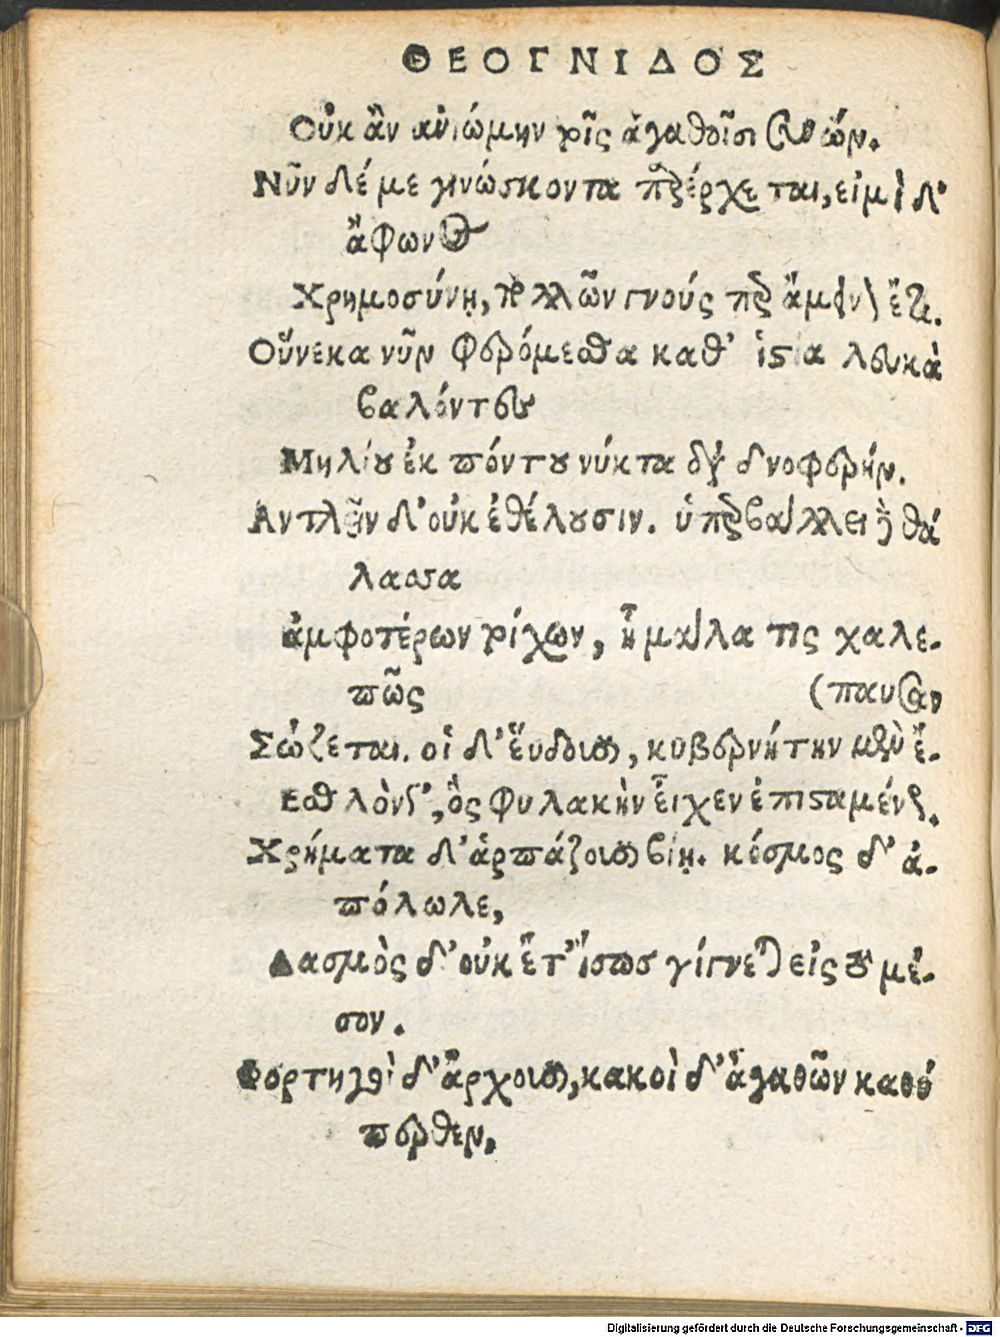 ΘΕΟΓΝΙΔΟΣ
Οὐκ ἂν ἀνιώμην τοῖς ἀγαθοῖσι συνών.
Νῦν δέ με γινώσκοντα παρέρχεται, εἰμὶ δ'
ἄφωνος
Χρημοσύνῃ, πολλῶν γνούς περ ἄμεινον ἔτι.
Οὕνεκα νῦν φερόμεσθα καθ' ἱστία λευκὰ
βαλόντες
Μηλίου ἐκ πόντου νύκτα διὰ δνοφερήν.
Αντλεῖν δ' οὐκ ἐθέλουσιν. ὑπερβάλλει δὲ θά
λασσα
ἀμφοτέρων τοίχων, ἦ μάλα τις χαλε-
πῶς (παυσαν
Σώζεται. οἱ δ' εὕδουσι, κυβερνήτην μὲν ἔ-
Εσθλὸνδ', ὃς φυλακὴν εἶχεν ἐπισταμένως.
Χρήματα δ' ἁρπάζουσι βίῃ. κόσμος δ' ἀ-
πόλωλε,
Δασμὸς δ' οὐκ ἔτ' ἴσος γίγνεται εἰς τὸ μέ-
σον.
Φορτηγοὶ δ' ἄρχουσι, κακοὶ δ' ἀγαθῶν καθύ
περθεν,
Digitalisierung gefördert durch die Deutsche Forschungsgemeinschaft - DFG